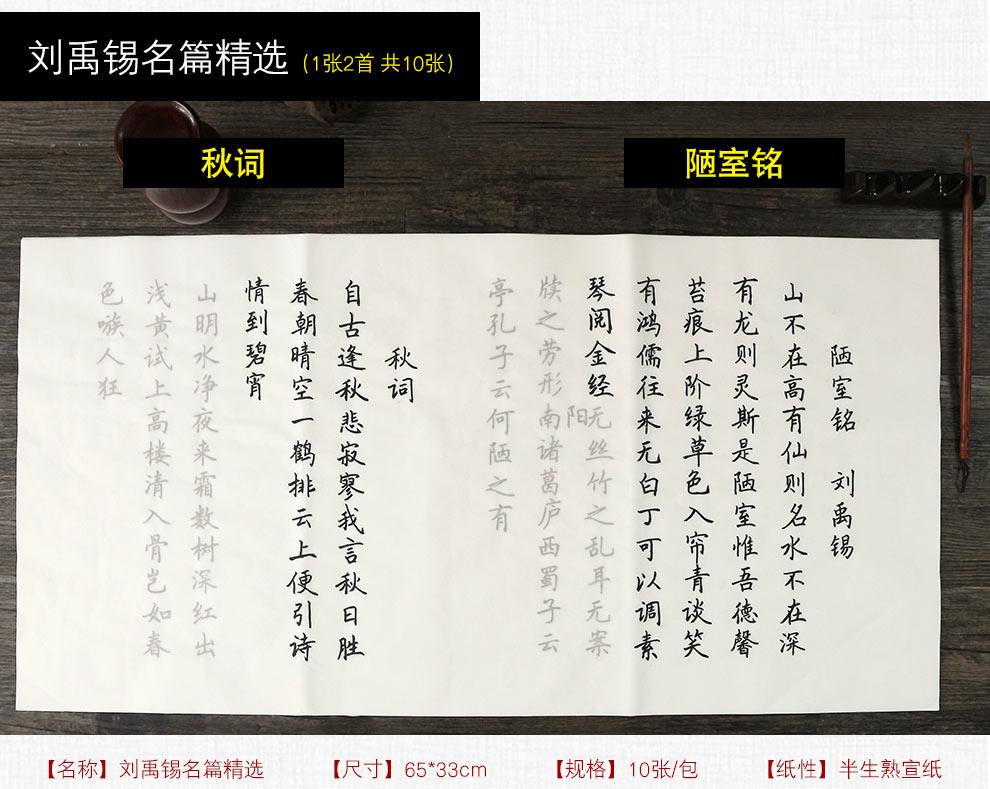 刘禹锡名篇精选（1张2首 共10张）
秋词
陋室铭
陋室铭 刘禹锡
山不在高有仙则名水不在深
有龙则灵斯是陋室惟吾德馨
苔痕上阶绿草色入帘青谈笑
有鸿儒往来无白丁可以调素
琴阅金经无丝竹之乱耳无案
牍之劳形南阳诸葛庐西蜀子云
亭孔子云何陋之有
秋词
自古逢秋悲寂寥我言秋日胜
春朝晴空一鹤排云上便引诗
情到碧霄
山明水净夜来霜数树深红出
浅黄试上高楼清入骨岂如春
色嗾人狂
【名称】刘禹锡名篇精选 【尺寸】65*33cm 【规格】10张/包 【纸性】半生熟宣纸